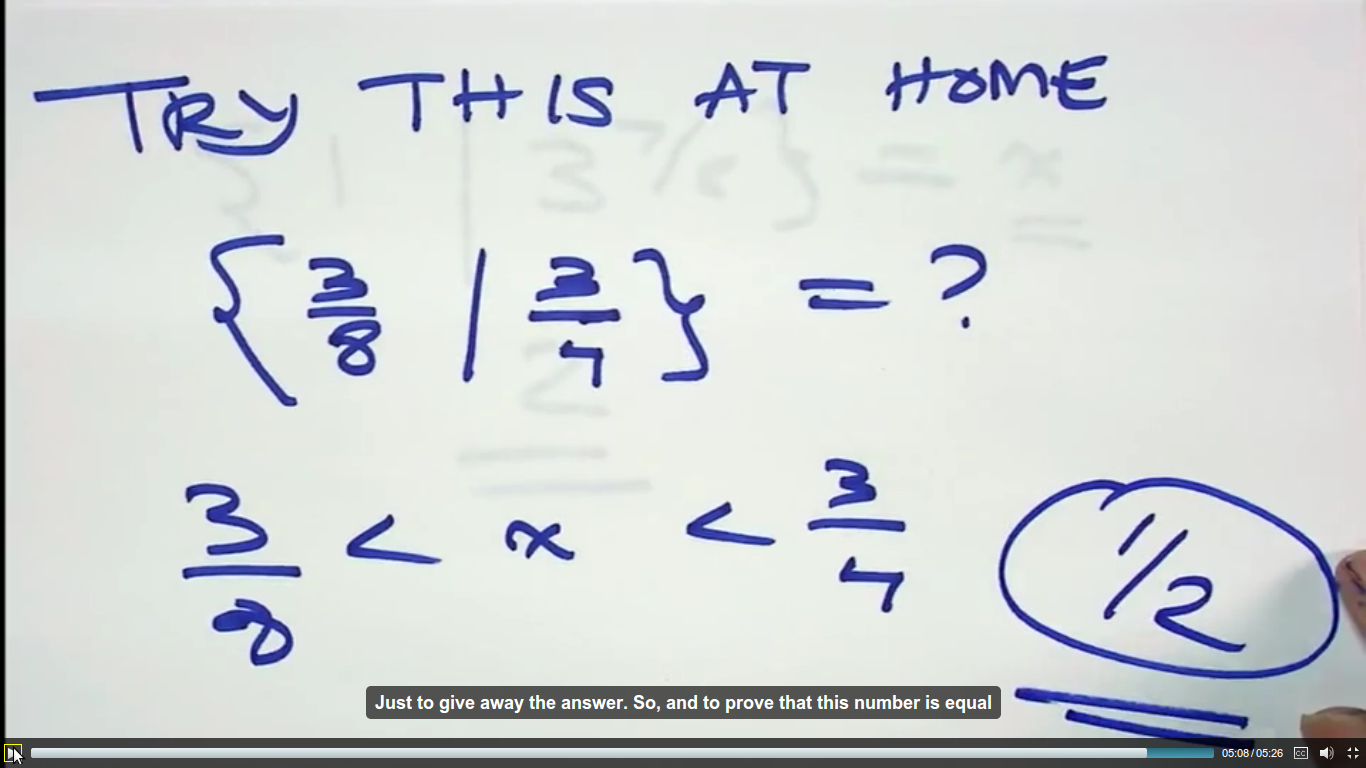 TRY THIS AT HOME
{ 3/8 | 3/4 } = ?
3/8 < x < 3/4
1/2
Just to give away the answer. So, and to prove that this number is equal
05:08/05:26
CC